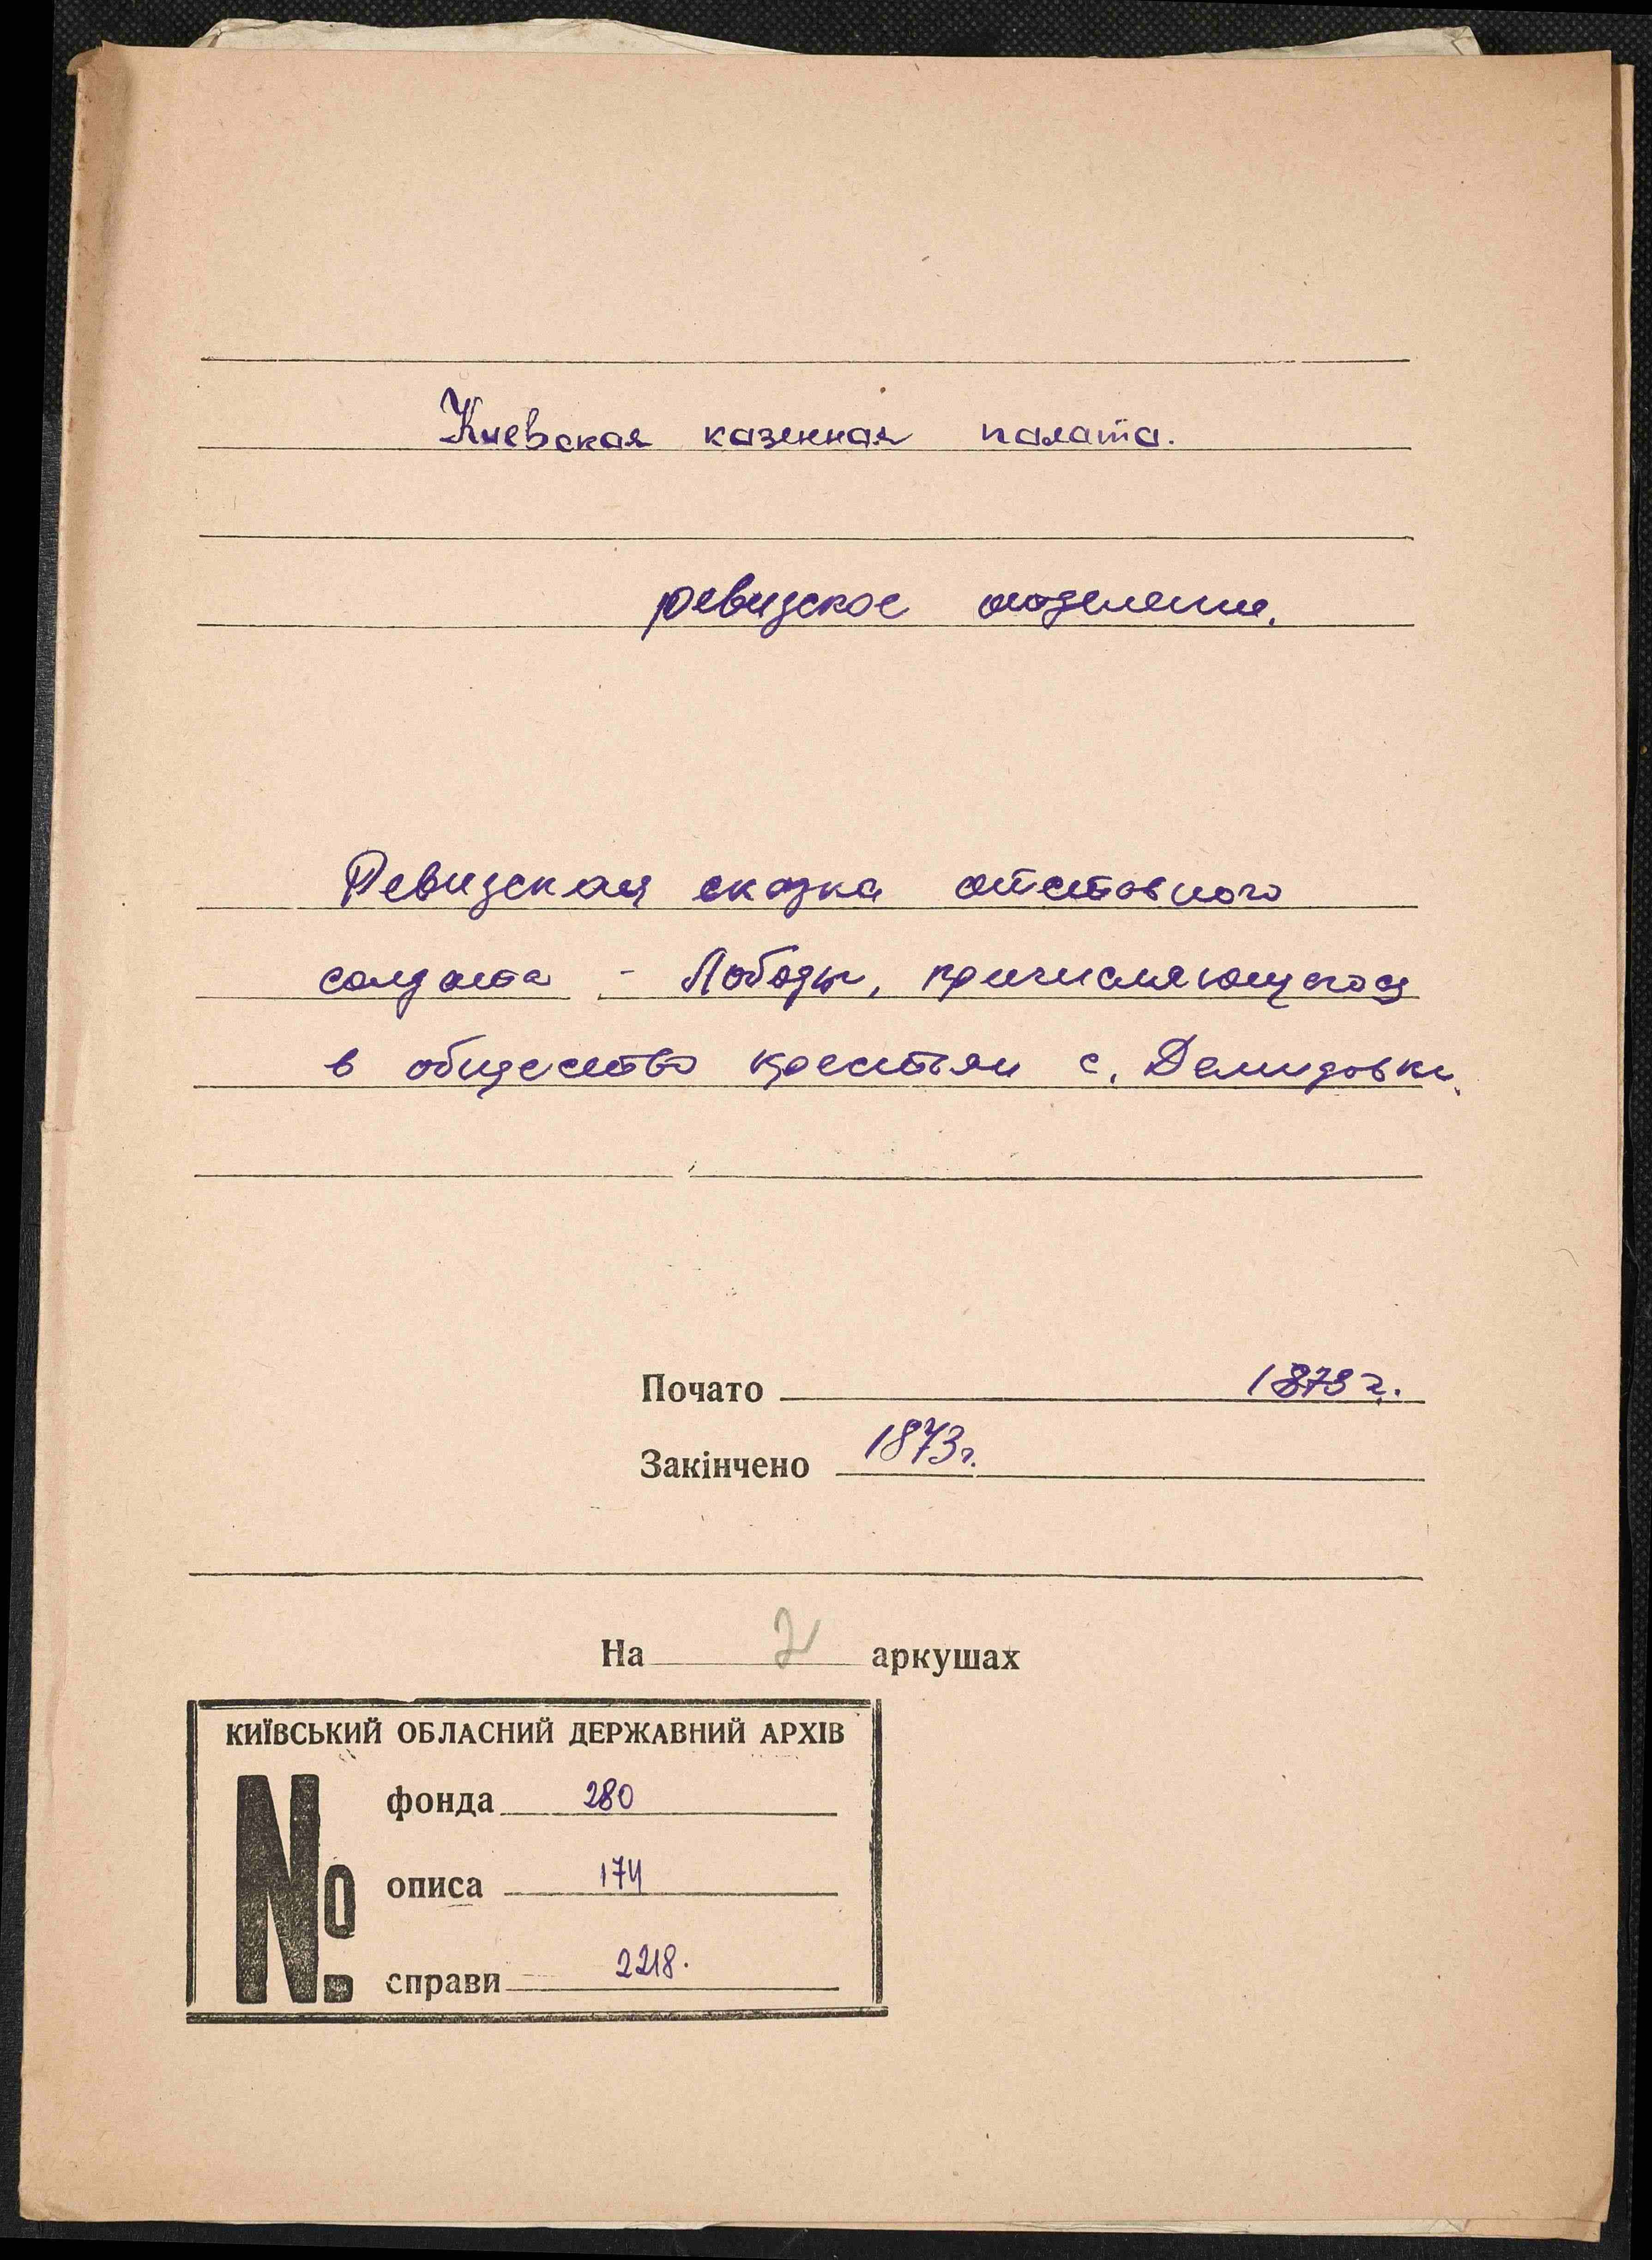 Киевская казенная палата.
ревизское отделение.
Ревизская сказка отставного
солдата - Лободы, причисляющегося
в общество крестьян с. Демидовки.
Почато 1873 г.
Закінчено 1873 г.
На 2 аркушах
КИЇВСЬКИЙ ОБЛАСНИЙ ДЕРЖАВНИЙ АРХІВ
№
фонда 280
описа 174
справи 2218.